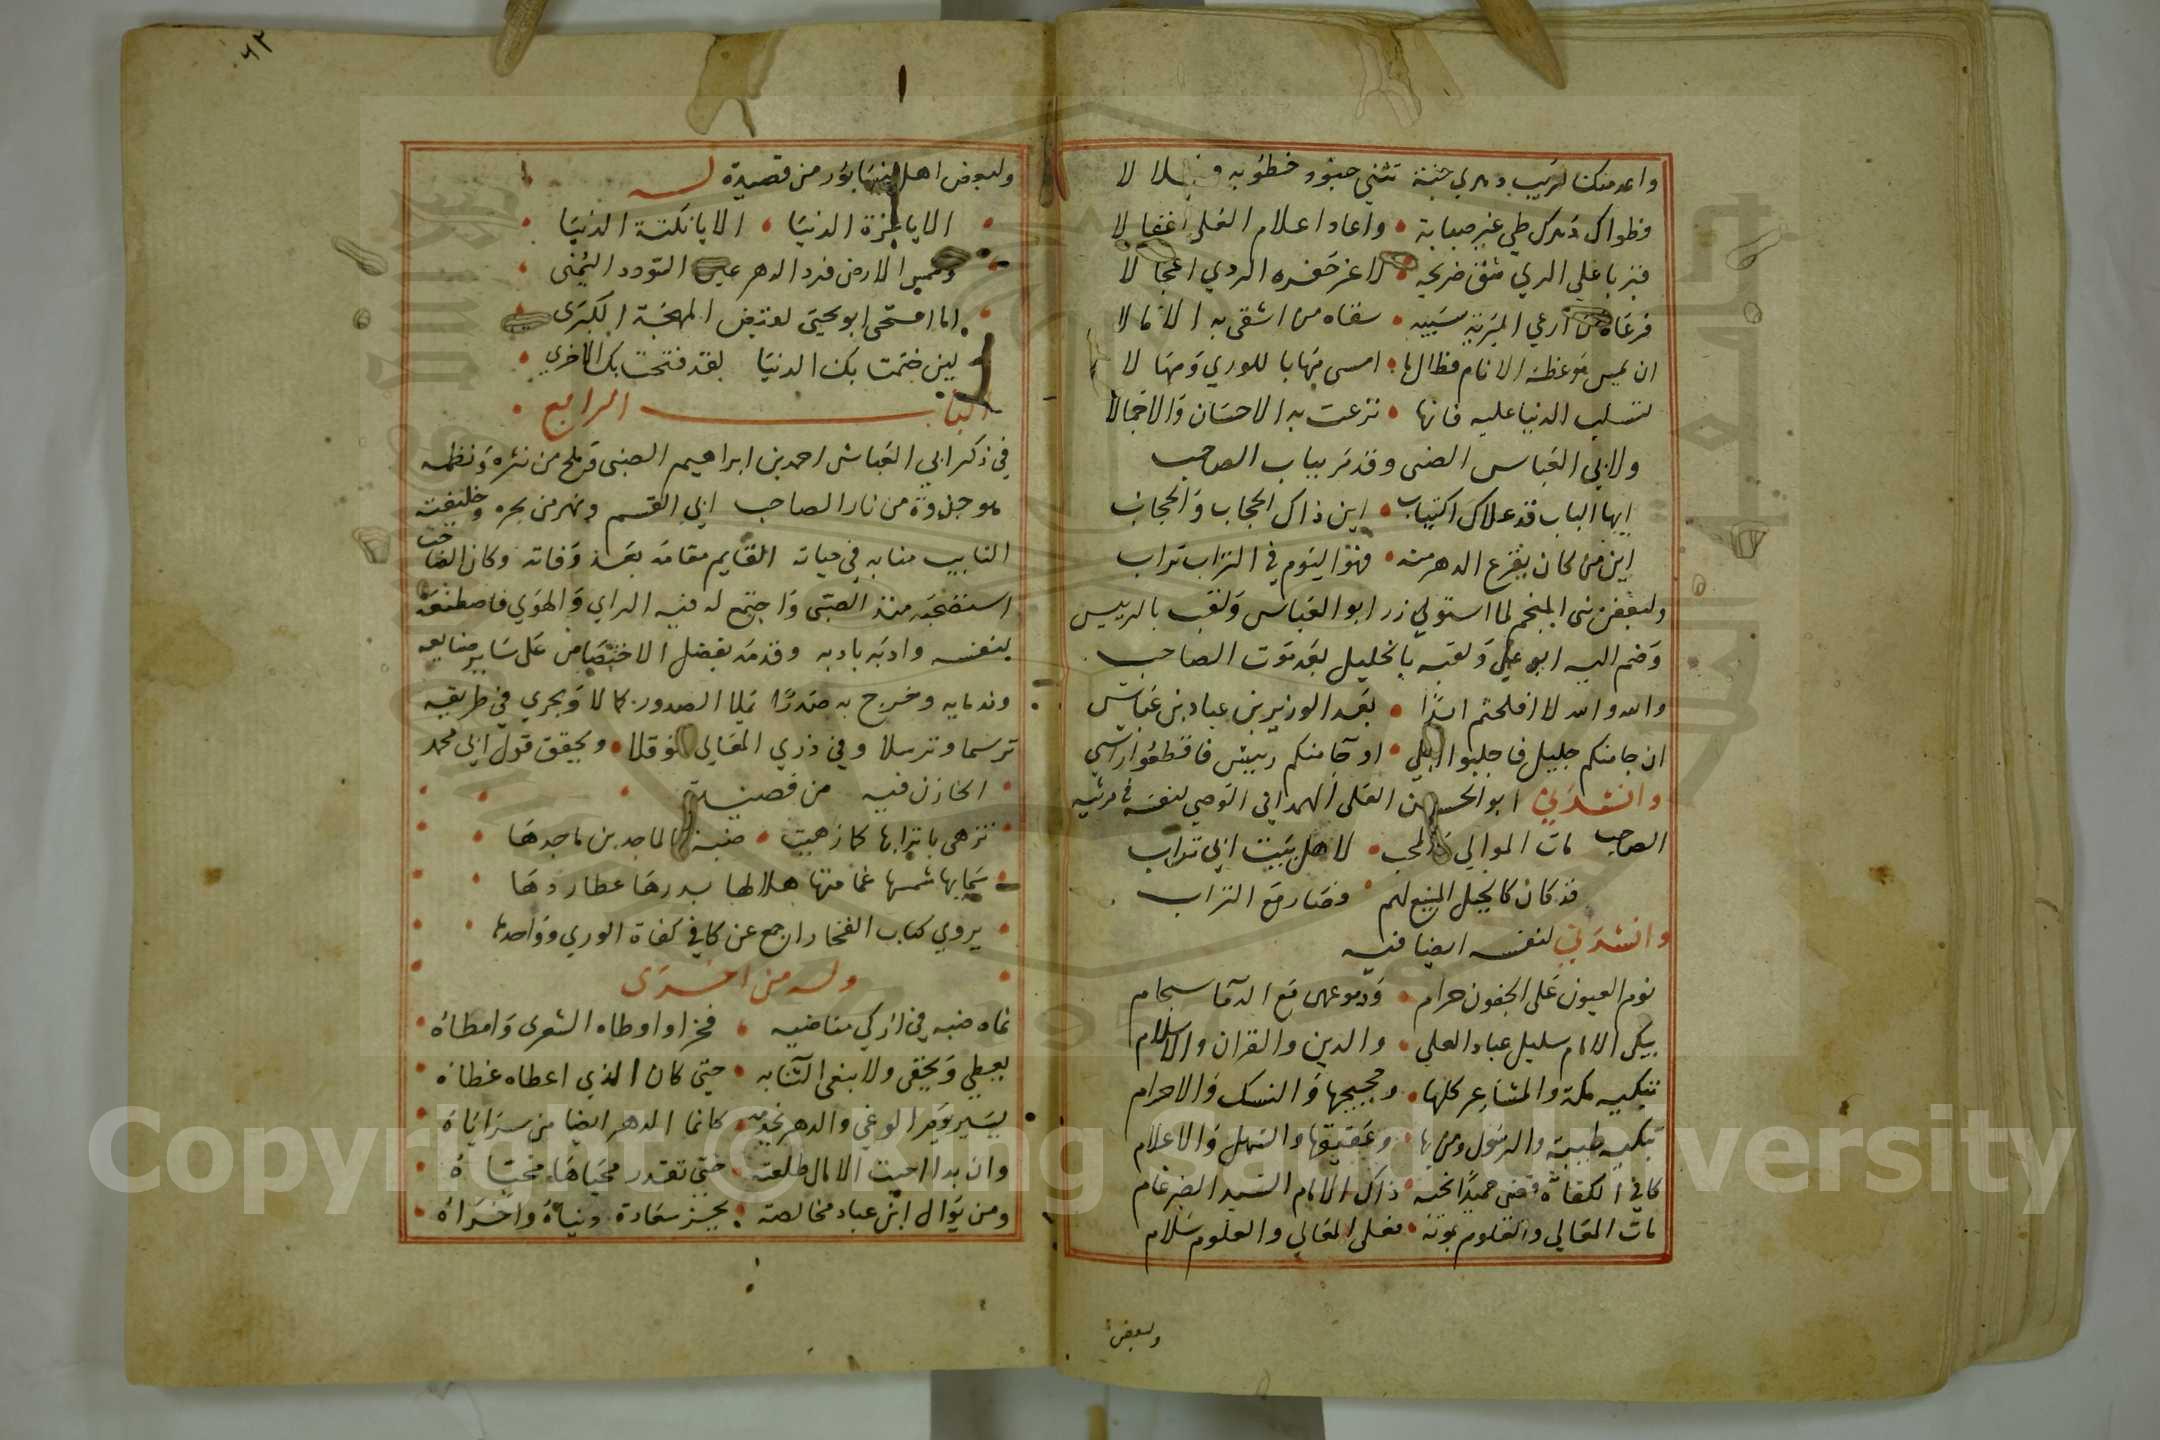 فطواك دهرك طي غير صيانة • واعاد اعلام العلي اغفالا
ان يمس موعظة الانام فطالما • امسى مهابا للوري ومهالا
لتسلب الدنيا عليه فانها • نزعت به الاحسان والاجمالا
ولابي العباس الضبى وقد مر بباب الصاحب
ايها الباب قد علاك اكتياب • اين ذاك الحجاب والحجاب
اين من كان يفزع الدهر منه • فهو اليوم في التراب تراب
ولبعض بنى المنجم لما استولي زر ابو العباس ولقب بالرييس
وضم اليه ابو علي ولقبه بالجليل بعد موت الصاحب
والله والله لا افلحتم ابدًا • بعد الوزير بن عباد بن عباس
ان جا منكم جليل فاجلبوا اجلي • او جا منكم رييس فاقطعوا راسي
وانشدني ابو الحسن العلى الهمداني الوصي لنفسه في مرثيه
الصاحب مات الموالي والمحب • لاهل بيت ابي تراب
قد كان كالجبل المنيع لهم • فصار مع التراب
وانشدني لنفسه ايضا فيه
نوم العيون على الجفون حرام • ودموعهن مع الدما سجام
يبكى الامام سليل عباد العلي • والدين والقران والاسلام
تبكيه مكة والمشاعر كلها • وحجيجها والنسك والاحرام
تبكيه طيبة والرسول ومن بها • وعقيقها والسهل والاعلام
كافي الكفاة قضى حميدا نحبه • ذاك الامام السيد الضرغام
مات المعالي والعلوم بموته • فعلى المعالي والعلوم سلام
ولبعض
٦٢
ولبعض اهل نيسابور من قصيدة لـــه
الا يا غرة الدنيا • الا يا نكتة الدنيا
لين ختمت بك الدنيا لقد فتحت بك الاخري
البـــاب الرابع
في ذكر ابي العباس احمد بن ابراهيم الضبى وملح من نثره ونظمه
هو جذوة من نار الصاحب ابي القسم ونهر من بحره وخليفته
النايب منابه في حياته القايم مقامه بعد وفاته وكان الصاحب
استصحبه منذ الصبى واجتمع له فيه الراي والهوي فاصطنعه
لنفسه وادبه بادبه وقدمه بفضل الاختصاص على ساير صنايعه
وندمايه وخرج به صدرًا يملا الصدور كمالا ويجري في طريقه
ترسما وترسلا وفي ذري المعالي توقلا • ويحقق قول ابي محمد
الخازن فيه من قصيدة
تزهى باترابها كما زهيت • ضبة بالماجد بن ماجدها
سمابها شمسها غمامتها هلالها بدرها عطاردها
يروي كتاب الفخار اجمع عن كافي كفاة الوري وواحدها
وله من اخرى
نماه ضبه في ازكي مناضبه • فخرا واوطاه الشعرى وامطاه
يعطي ويخفى ولا يبغى الثنا به • حتى كان الذي اعطاه غطاه
وان بدا احيت الامال طلعته • حتى تقدر محياها محياه
ومن يوال ابن عباد مخالصة • يحز سعادة دنياه واخراه